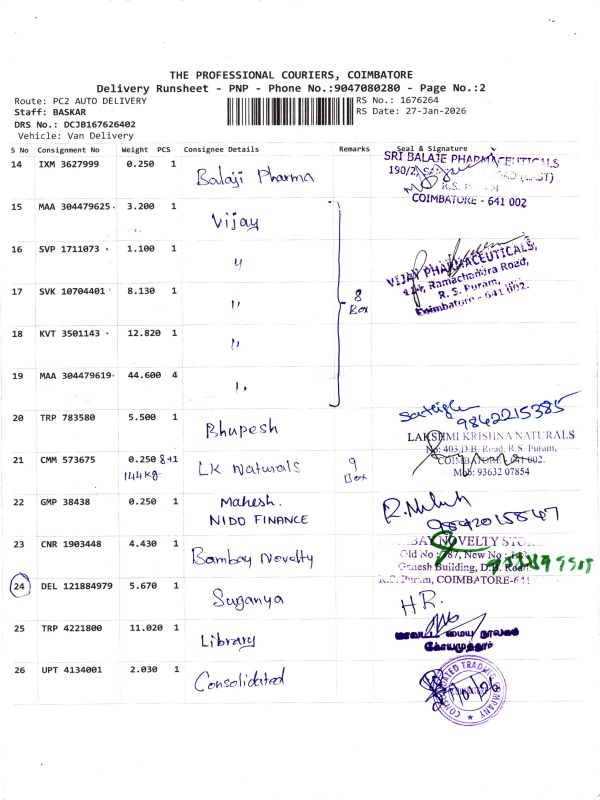 THE PROFESSIONAL COURIERS, COIMBATORE
Delivery Runsheet - PNP - Phone No.:9047080280 - Page No.:2
Route: PC2 AUTO DELIVERY
RS No.: 1676264
Staff: BASKAR
RS Date: 27-Jan-2026
DRS No.: DCJB167626402
Vehicle: Van Delivery
S No Consignment No Weight PCS Consignee Details Remarks Seal & Signature
14 IXM 3627999 0.250 1 Balaji Pharma
SRI BALAJE PHARMACEUTICALS
190/2, ROAD (EAST)
R.S. PURAM
COIMBATORE - 641 002
15 MAA 304479625 3.200 1 Vijay
16 SVP 1711073 1.100 1 "
17 SVK 10704401 8.130 1 "
8 Box
VIJAY PHARMACEUTICALS,
Ramachandra Road,
R. S. Puram,
Coimbatore - 641 002.
18 KVT 3501143 12.820 1 "
19 MAA 304479619 44.600 4 "
20 TRP 783580 5.500 1 Bhupesh
9842215385
21 CMM 573675 0.250 8+1 LK Naturals 9 Box
144 kg
LAKSHMI KRISHNA NATURALS
No: 403,D.B. Road, R.S. Puram,
COIMBATORE-641 002.
Mob: 93632 07854
22 GMP 38438 0.250 1 Mahesh.
NIDO FINANCE
23 CNR 1903448 4.430 1 Bombay Novelty
BAY NOVELTY STO
Old No : 387, New No :
Ganesh Building, D.B. Road
R.S. Puram, COIMBATORE-641
24 DEL 121884979 5.670 1 Suganya
H.R.
25 TRP 4221800 11.020 1 Library
மாவட்ட மைய நூலகம்
கோயமுத்தூர்
26 UPT 4134001 2.030 1 Consolidated
CONSOLIDATED TRADING COMPANY